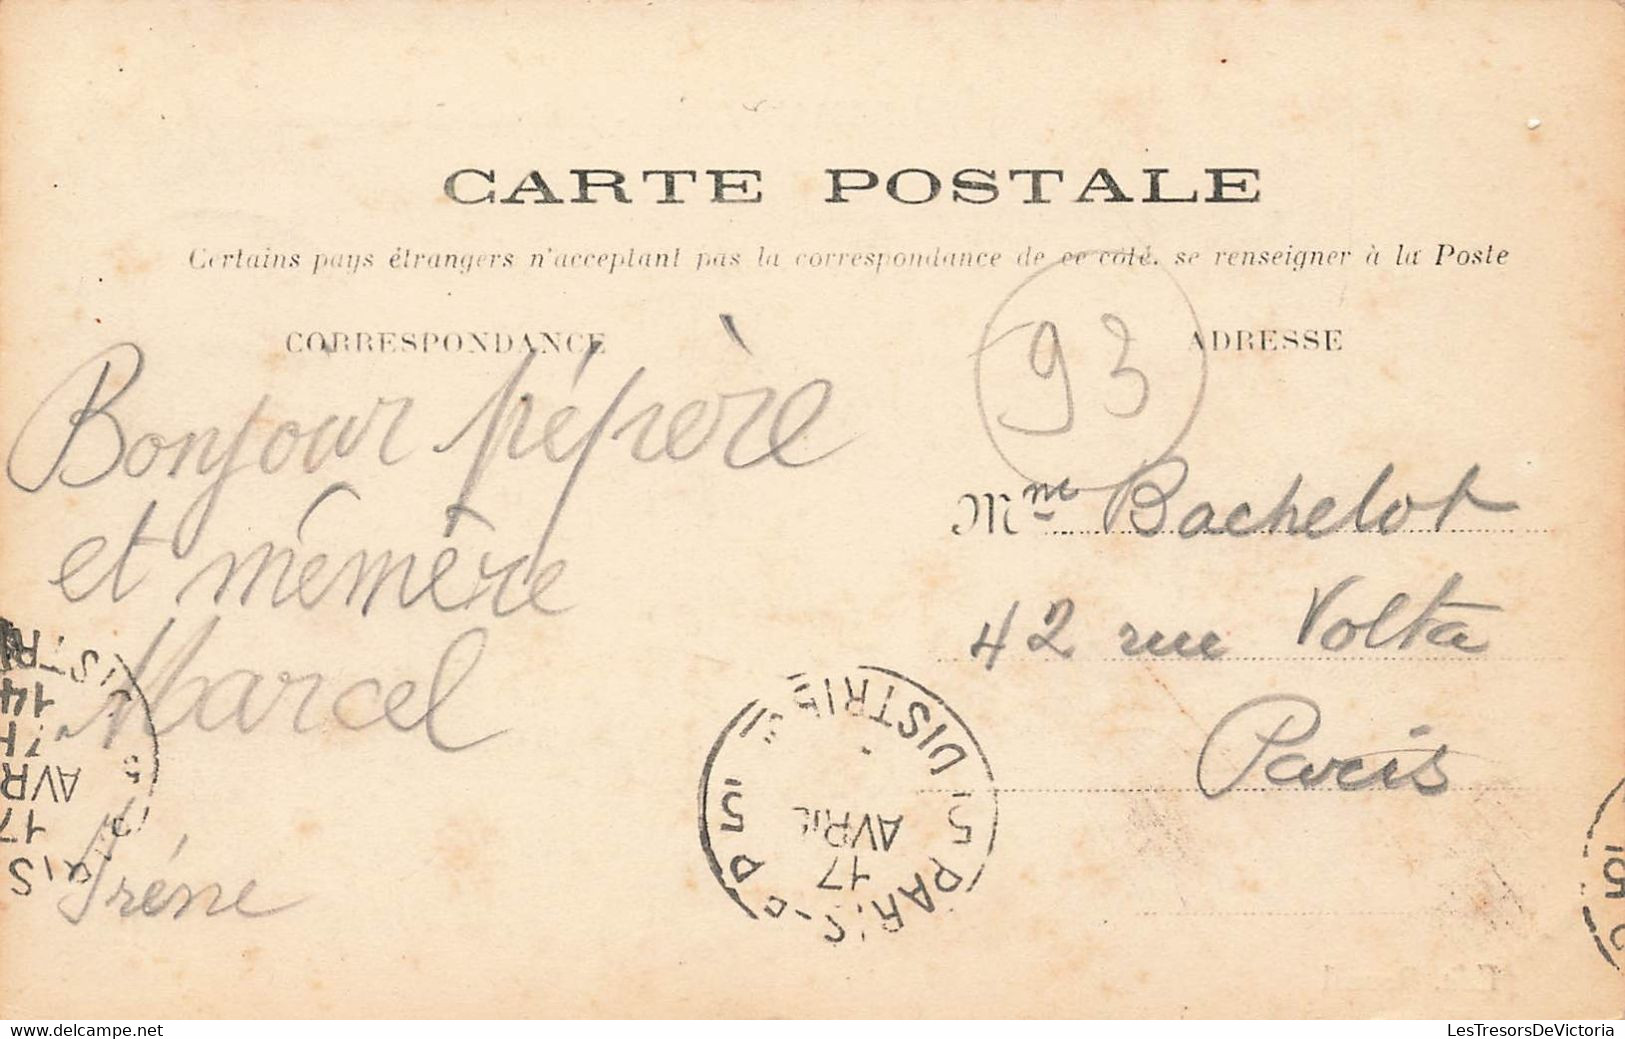 CARTE POSTALE
Certains pays étrangers n'acceptant pas la correspondance de ce côté, se renseigner à la Poste
CORRESPONDANCE
ADRESSE
93
Bonjour pépère
et mémère
Marcel
Iréne
Mme Bachelot
42 rue Volta
Paris
PARIS
DISTRIB
5
5
17
AVRIL
DISTRI
14
AVR
17
www.delcampe.net
LesTresorsDeVictoria